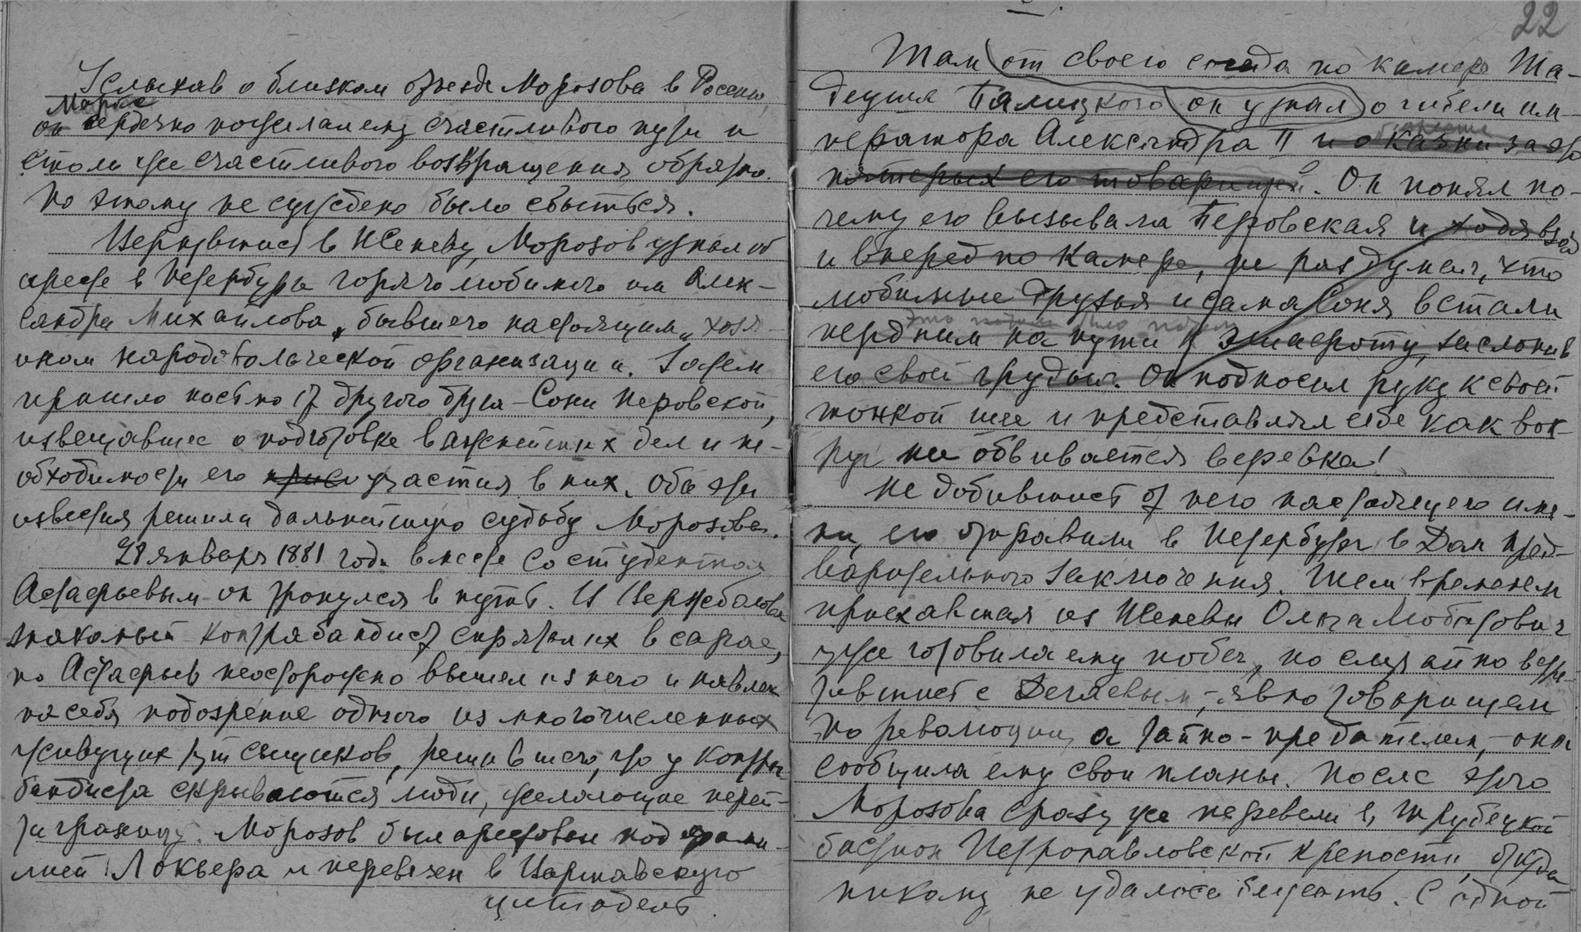 Услыхав о близком отъезде Морозова в Россию,
Маркс
он сердечно пожелал ему счастливого пути и
столь же счастливого возвращения обратно.
Но этому не суждено было сбыться.
Вернувшись в Женеву, Морозов узнал об
аресте в Петербурге горячо любимого им Алек-
сандра Михайлова, бывшего настоящим „хозя-
ином народовольческой организации. Затем
пришло письмо от другого друга – Сони Перовской,
извещавшее о подготовке важнейших дел и не-
обходимости его участия в них. Оба эти
известия решили дальнейшую судьбу Морозова.
28 января 1881 года вместе со студентом
Астафьевым он тронулся в путь. В Вержболове
знакомый контрабандист спрятал их в сарае,
но Астафьев неосторожно вышел из него и навлек
на себя подозрение одного из многочисленных
живущих тут сыщиков, решившего, что у контра-
бандиста скрываются люди, желающие перей-
ти границу. Морозов был арестован под фами-
лией Локьера и перевезен в Варшавскую
цитадель.
22
Там от своего соседа по камере Та-
деуша Балицкого он узнал о гибели им-
ператора Александра II и о казни за это
пятерых его товарищей. Он понял по-
чему его вызывала Перовская и ходя взад
и вперед по камере, не раз думал, что
любимые друзья и сама Соня встали
перед ним на пути к эшафоту, заслонив
его своей грудью. Он подносил руку к своей
тонкой шее и представлял себе как вок-
руг нее обвивается веревка!
Не добившись от него настоящего име-
ни, его отправили в Петербург в Дом пред-
варительного заключения. Тем временем
приехавшая из Женевы Ольга Любатович
уже готовила ему побег, но случайно встре-
тившись с Дегаевым, – явно товарищем
по революции, а тайно – предателем, – она
сообщила ему свои планы. После этого
Морозова сразу же перевели в Трубецкой
бастион Петропавловской крепости, откуда
никому не удалось бежать. С одной